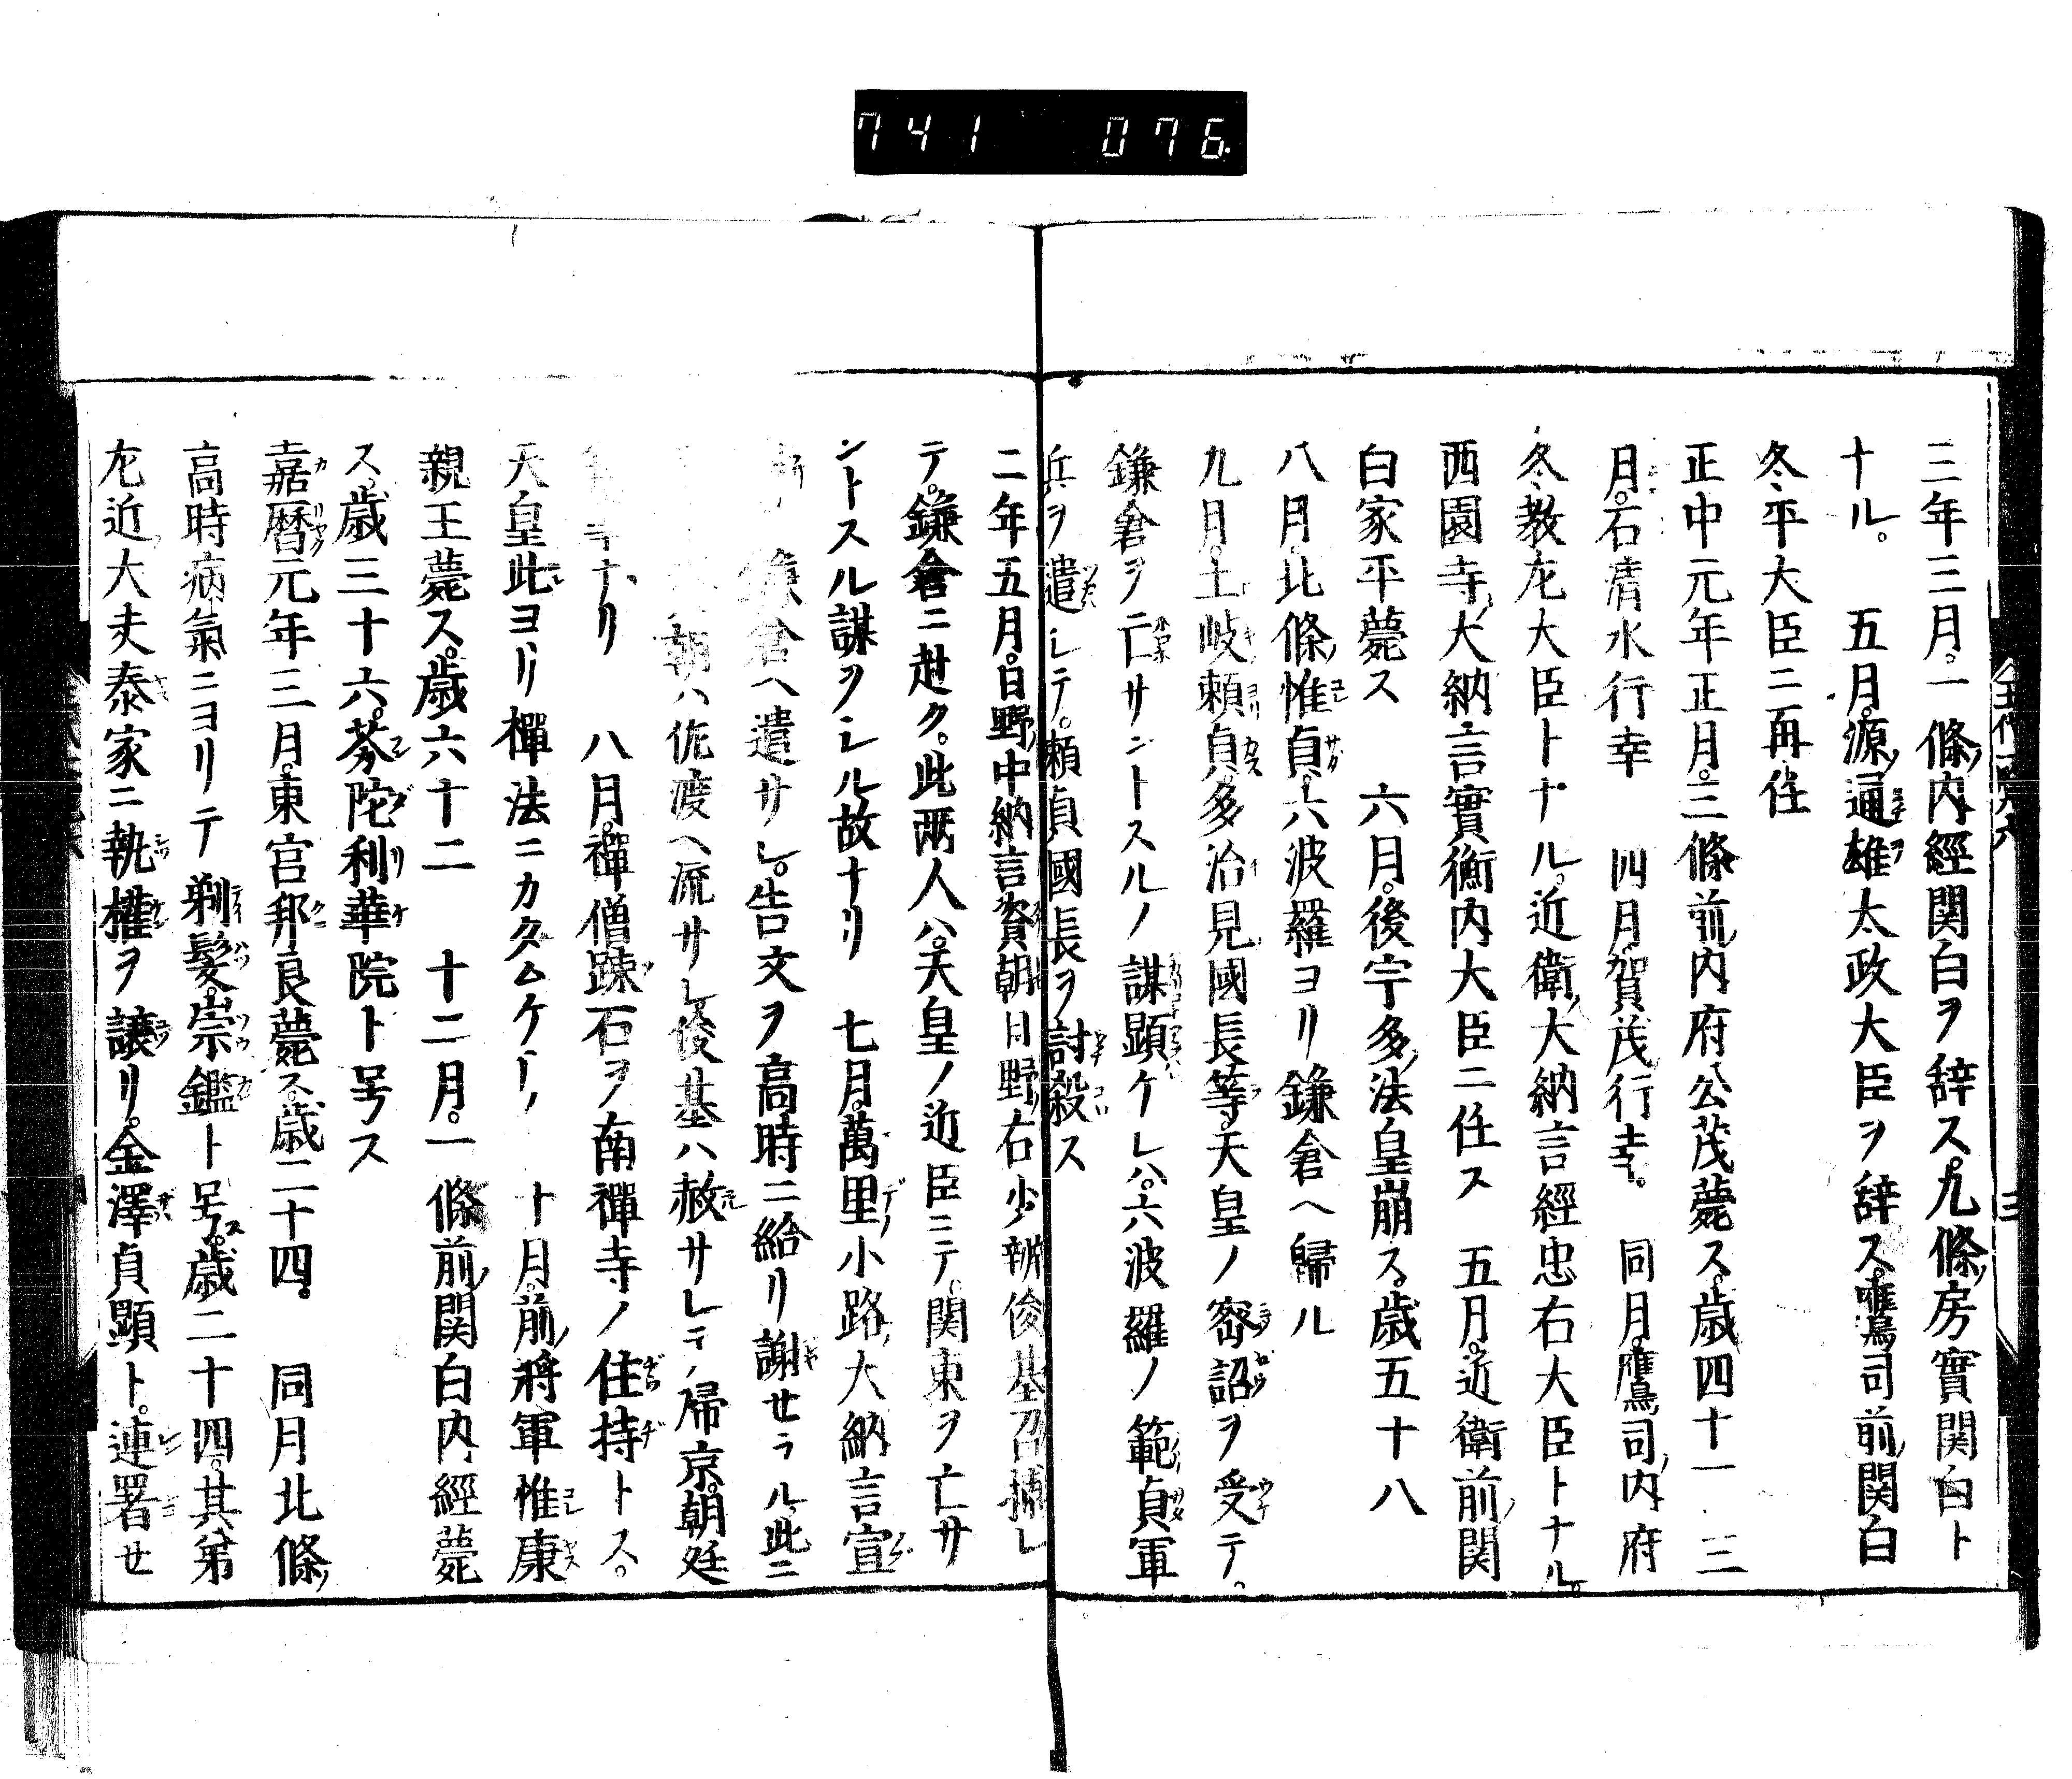 741 076
三年三月。一條内經関白ヲ辞ス。九條房實関白ト
ナル。 五月。源通雄太政大臣ヲ辞ス。鷹司前関白
冬平大臣ニ再任
正中元年正月。三條前内府公茂薨ス。歳四十一 三
月。石清水行幸 四月賀茂行幸。 同月。鷹司内府
冬教左大臣トナル。近衛大納言經忠右大臣トナル。
西園寺大納言實衡内大臣ニ任ス 五月。近衛前関
白家平薨ス 六月。後宇多法皇崩ス。歳五十八
八月。北條惟貞。六波羅ヨリ鎌倉ヘ歸ル
九月。土岐頼貞。多治見國長等。天皇ノ密詔ヲ受テ。
鎌倉ヲ亡サントスルノ謀顕ケレハ。六波羅ノ範貞軍
兵ヲ遣シテ。頼貞國長ヲ討殺ス
二年五月。日野中納言資朝日野右少辨俊基召捕レ
テ。鎌倉ニ赴ク。此兩人ハ。天皇ノ近臣ニテ。関東ヲ亡サ
ントスル謀ヲシル故ナリ 七月。萬里小路大納言宣
鎌倉ヘ遣サレ。告文ヲ高時ニ給リ謝セラル。此ニ
朝ハ佐渡ヘ流サレ。俊基ハ赦サレテ歸京。朝廷
ナリ 八月。禪僧踈石ヲ南禪寺ノ住持トス。
天皇此ヨリ禪法ニカタムケリ 十月。前將軍惟康
親王薨ス。歳六十二 十二月。一條前関白内經薨
ス。歳三十六。芬陀利華院ト号ス
嘉暦元年三月。東宮邦良薨ス。歳二十四。 同月北條
高時病氣ニヨリテ剃髮。崇鑑ト号ス。歳二十四。其弟
左近大夫泰家ニ執權ヲ譲リ。金澤貞顕ト。連署セ